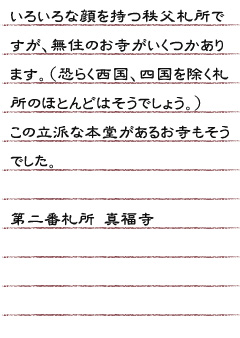 いろいろな顔を持つ秩父札所で
すが、無住のお寺がいくつかあり
ます。（恐らく西国、四国を除く札
所のほとんどはそうでしょう。）
この立派な本堂があるお寺もそう
でした。
第二番札所　真福寺